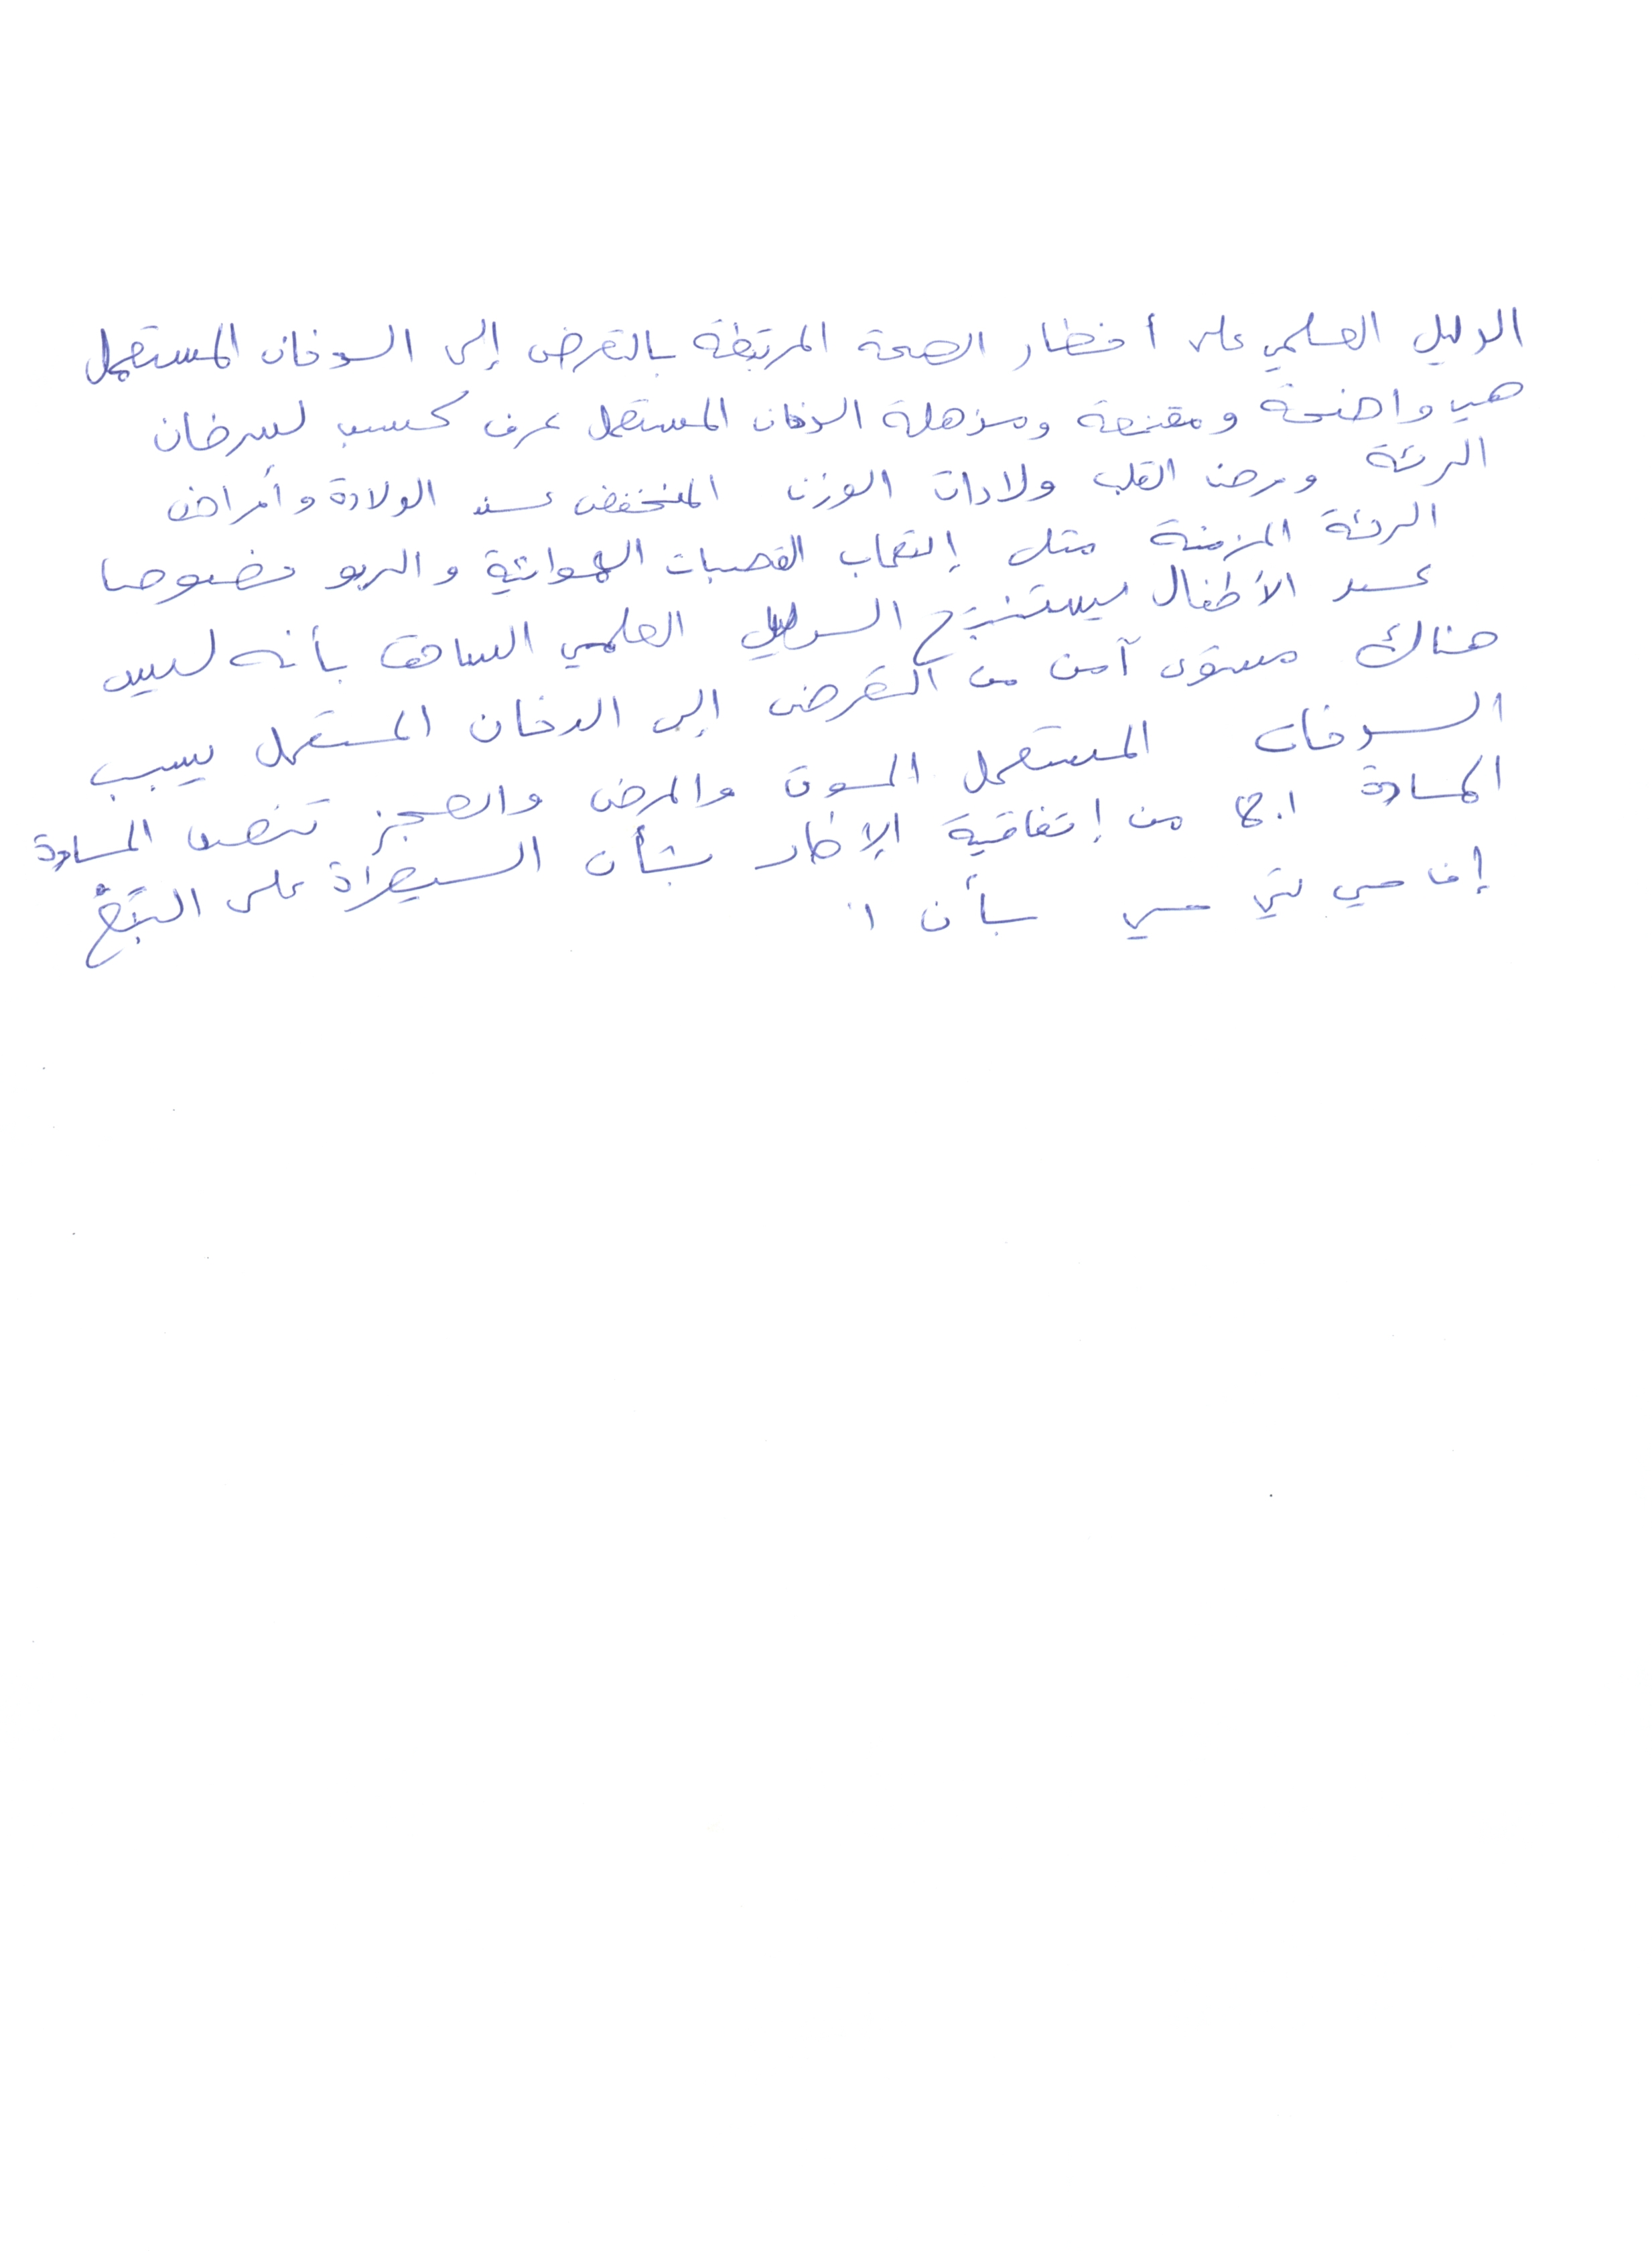 الدليل العلمي على أخطار الصحة المرتبطة بالتعرض إلى الدخان المستعمل
هي واضحة ومقنعة ومذهلة الدخان المستعمل عرف كسبب لسرطان
الرئة ومرض القلب ولادات الوزن المنخفض عند الولادة وأمراض
الرئة المزمنة مثل إلتهاب القصبات الهوائية والربو خصوصا
عند الأطفال يستنتج الدليل العلمي الساحق بأنه ليس
هناك مستوى آمن من التعرض إلى الدخان المستعمل يسبب
الدخان المستعمل الموت والمرض والعجز تنص المادة
المادة 8.1 من إتفاقية الإطار بشأن السيطرة على التبغ
إف سي تي سي بأن ا